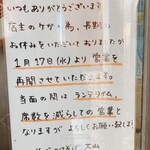 いつもありがとうございます
店主のケガの為、長期の
お休みをいただいておりましたが
1月17日(水)より 営業を
再開させていただきます。
当面の間は ランチタイム、
席数を減らしての営業と
なりますが よろしくお願い致します